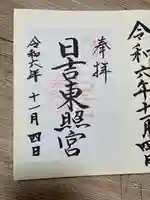 奉拝
日吉東照宮
令和六年 十一月 四日
令和六年十一月四日